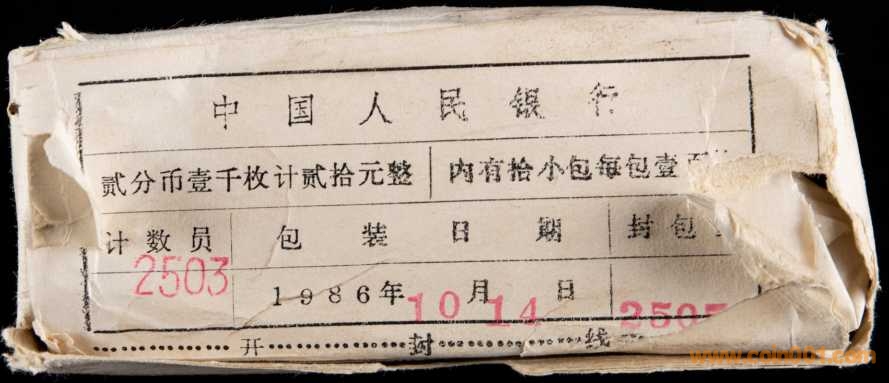 中国人民银行
贰分币壹千枚计贰拾元整 内有拾小包每包壹百
计数员 包装日期 封包
2503 1986年10月14日 2505
开封线
www.coin001.com